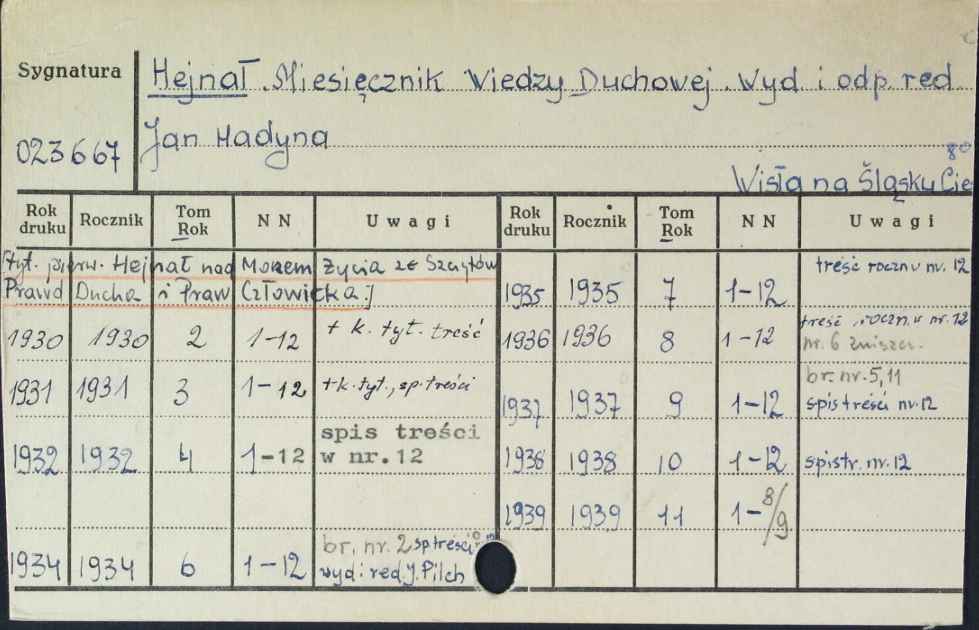 Sygnatura
Hejnał. Miesięcznik Wiedzy Duchowej. Wyd. i odp. red.
023667
Jan Hadyna
8°
Wisła na Śląsku Cie
Rok druku Rocznik Tom Rok NN Uwagi Rok druku Rocznik Tom Rok NN Uwagi
[tyt. pierw. Hejnał nad Morzem Życia ze Szczytów
Prawd Ducha i Praw Człowieka.]
1930 1930 2 1-12 + k. tyt. treść
1931 1931 3 1-12 + k. tyt., sp. treści
1932 1932 4 1-12 spis treści
w nr.12
1934 1934 6 1-12 br. nr. 2 sp treści
wyd i red J. Pilch
1935 1935 7 1-12 treść roczn w nr. 12
1936 1936 8 1-12 treść roczn. w nr. 12
nr. 6 zniszcz.
1937 1937 9 1-12 br. nr. 5, 11
spis treści nr. 12
1938 1938 10 1-12 spis tr. nr. 12
1939 1939 11 1-8/9